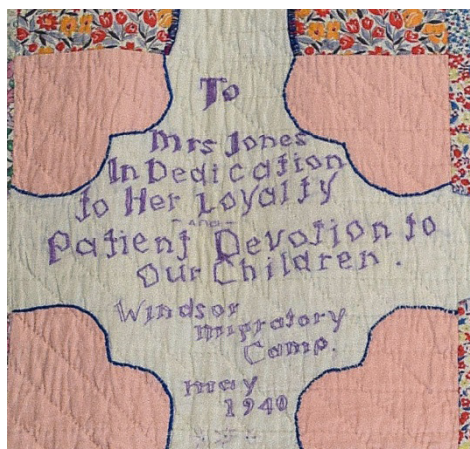 To
Mrs Jones
In Dedication
to Her Loyalty
- AND -
Patient Devotion to
Our Children.
Windsor
Migratory
Camp.
May
1940